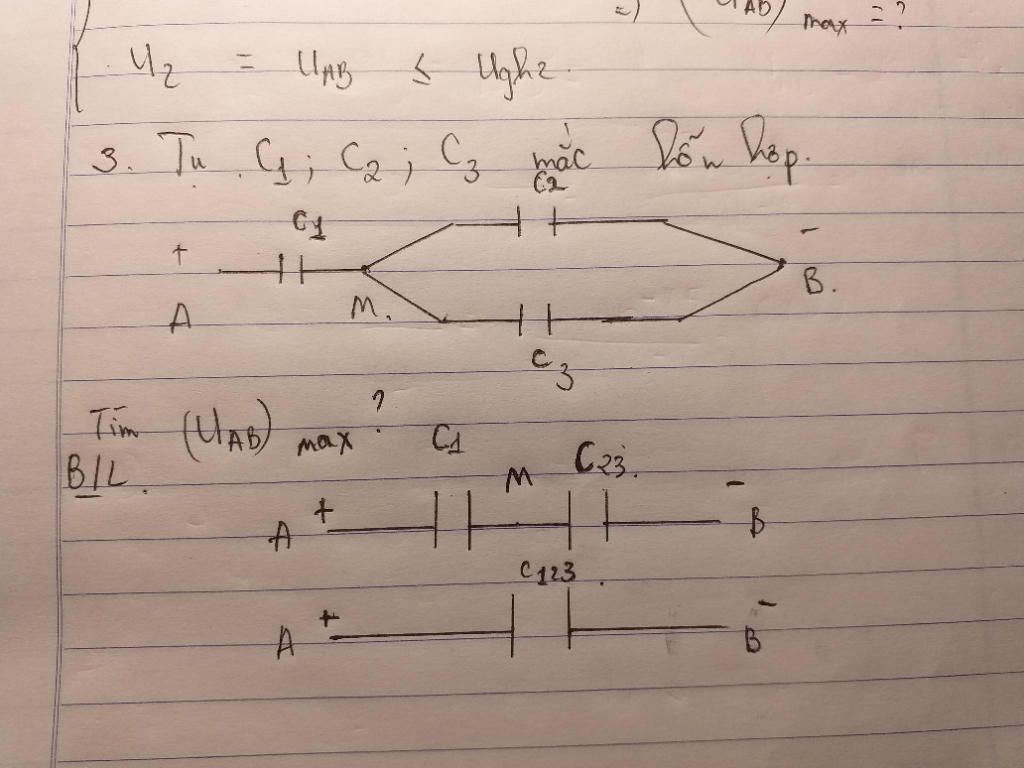 =) (UAB) max = ?
U2 = UAB ≤ Ugh2.
3. Tụ C1; C2; C3 mắc hỗn hợp.
C2
C1
+ -
A M. B.
C3
Tìm (UAB) max ?
B/L.
C1 M C23.
A + - B
C123.
A + - B